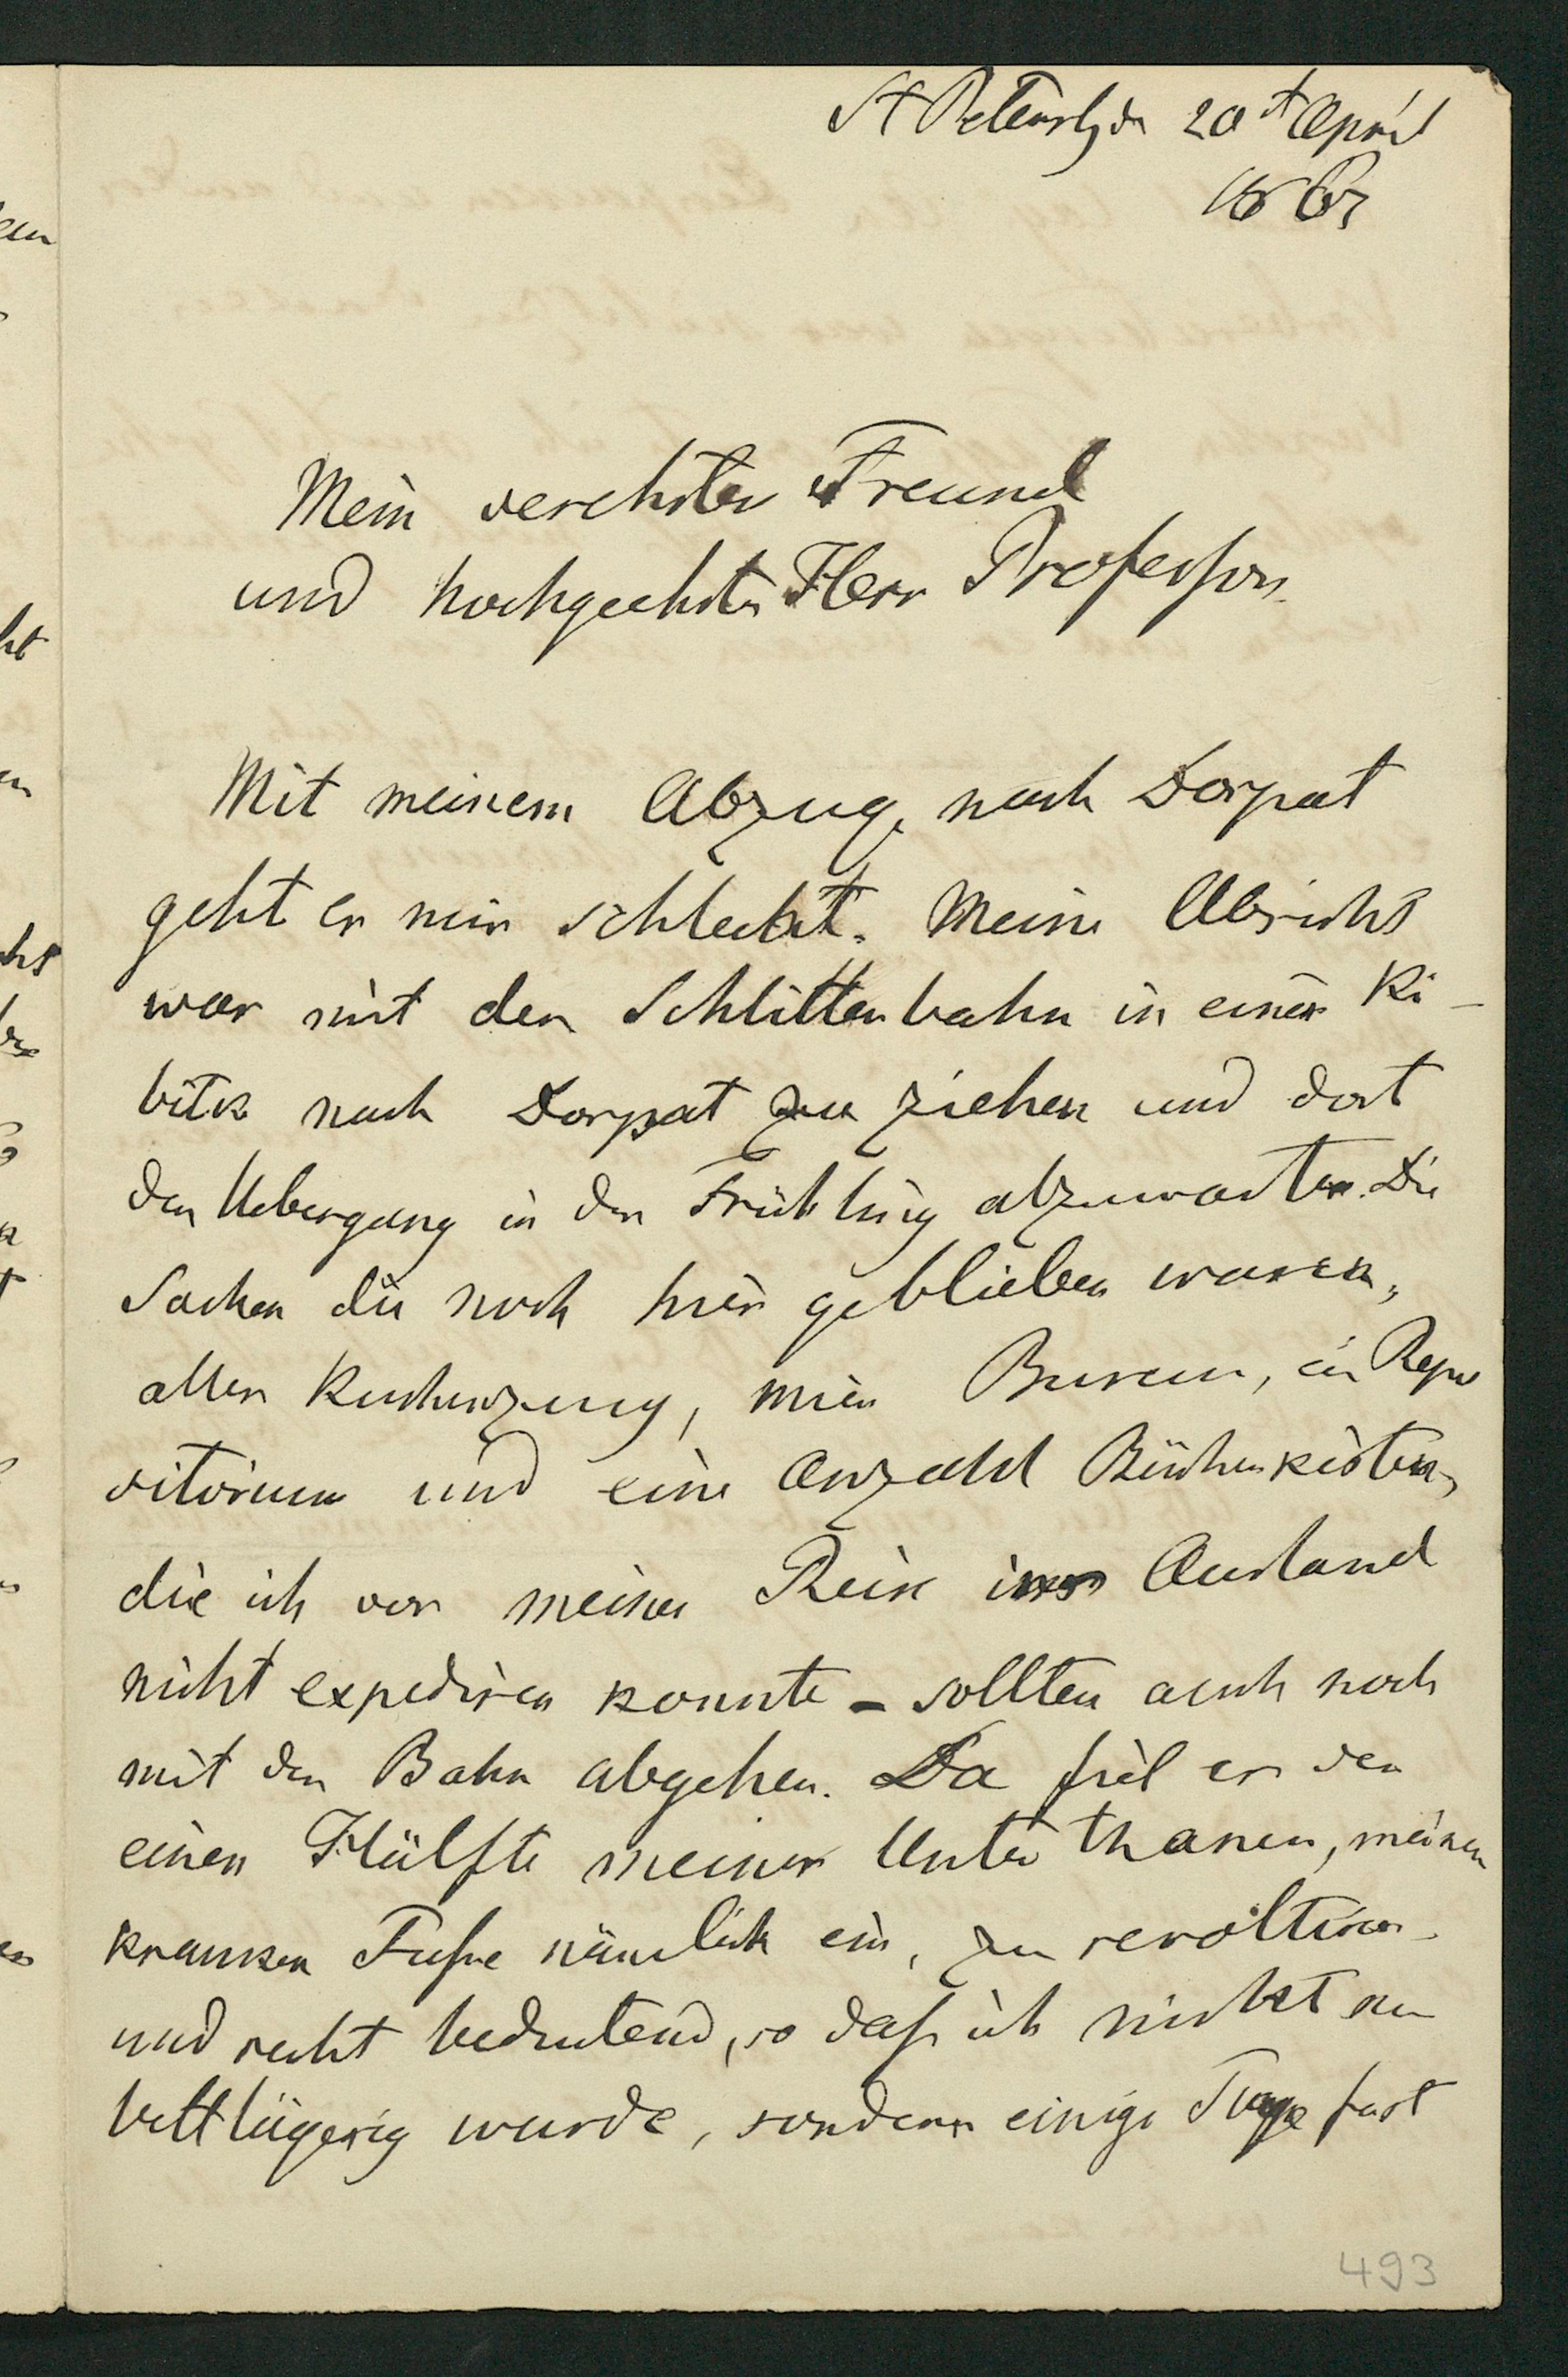 St Petersb. d. 20t April
1867
Mein verehrter Freund
und hochgeehrter Herr Professor.
Mit meinem Abzuge nach Dorpat
geht es mir schlecht. Meine Absicht
war mit der Schlittenbahn in einer Ki-
bitk nach Dorpat zu ziehen und dort
den Uebergang in den Frühling abzuwarten. Die
Sachen die noch hier geblieben waren,
alles Kuchenzeug, mein Bureau, ein Repo
sitorium und eine Anzahl Bücherkisten,
die ich vor meiner Reise ins Ausland
nicht expediren konnte - sollten auch noch
mit der Bahn abgehen. Da fiel es der
einen Hälfte meiner Unterthanen, meinem
kranken Fusse nämlich ein, zu revoltiren
und recht bedeutend, so dass ich nicht nur
bettlägerig wurde, sondern einige Tage fast
493